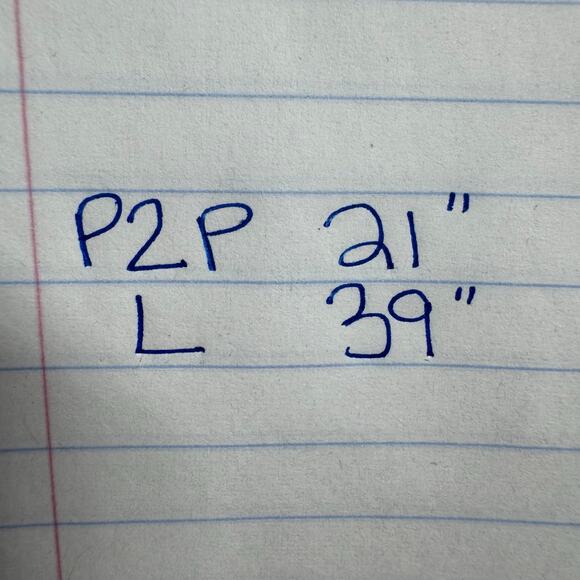 P2P 21"
L 39"